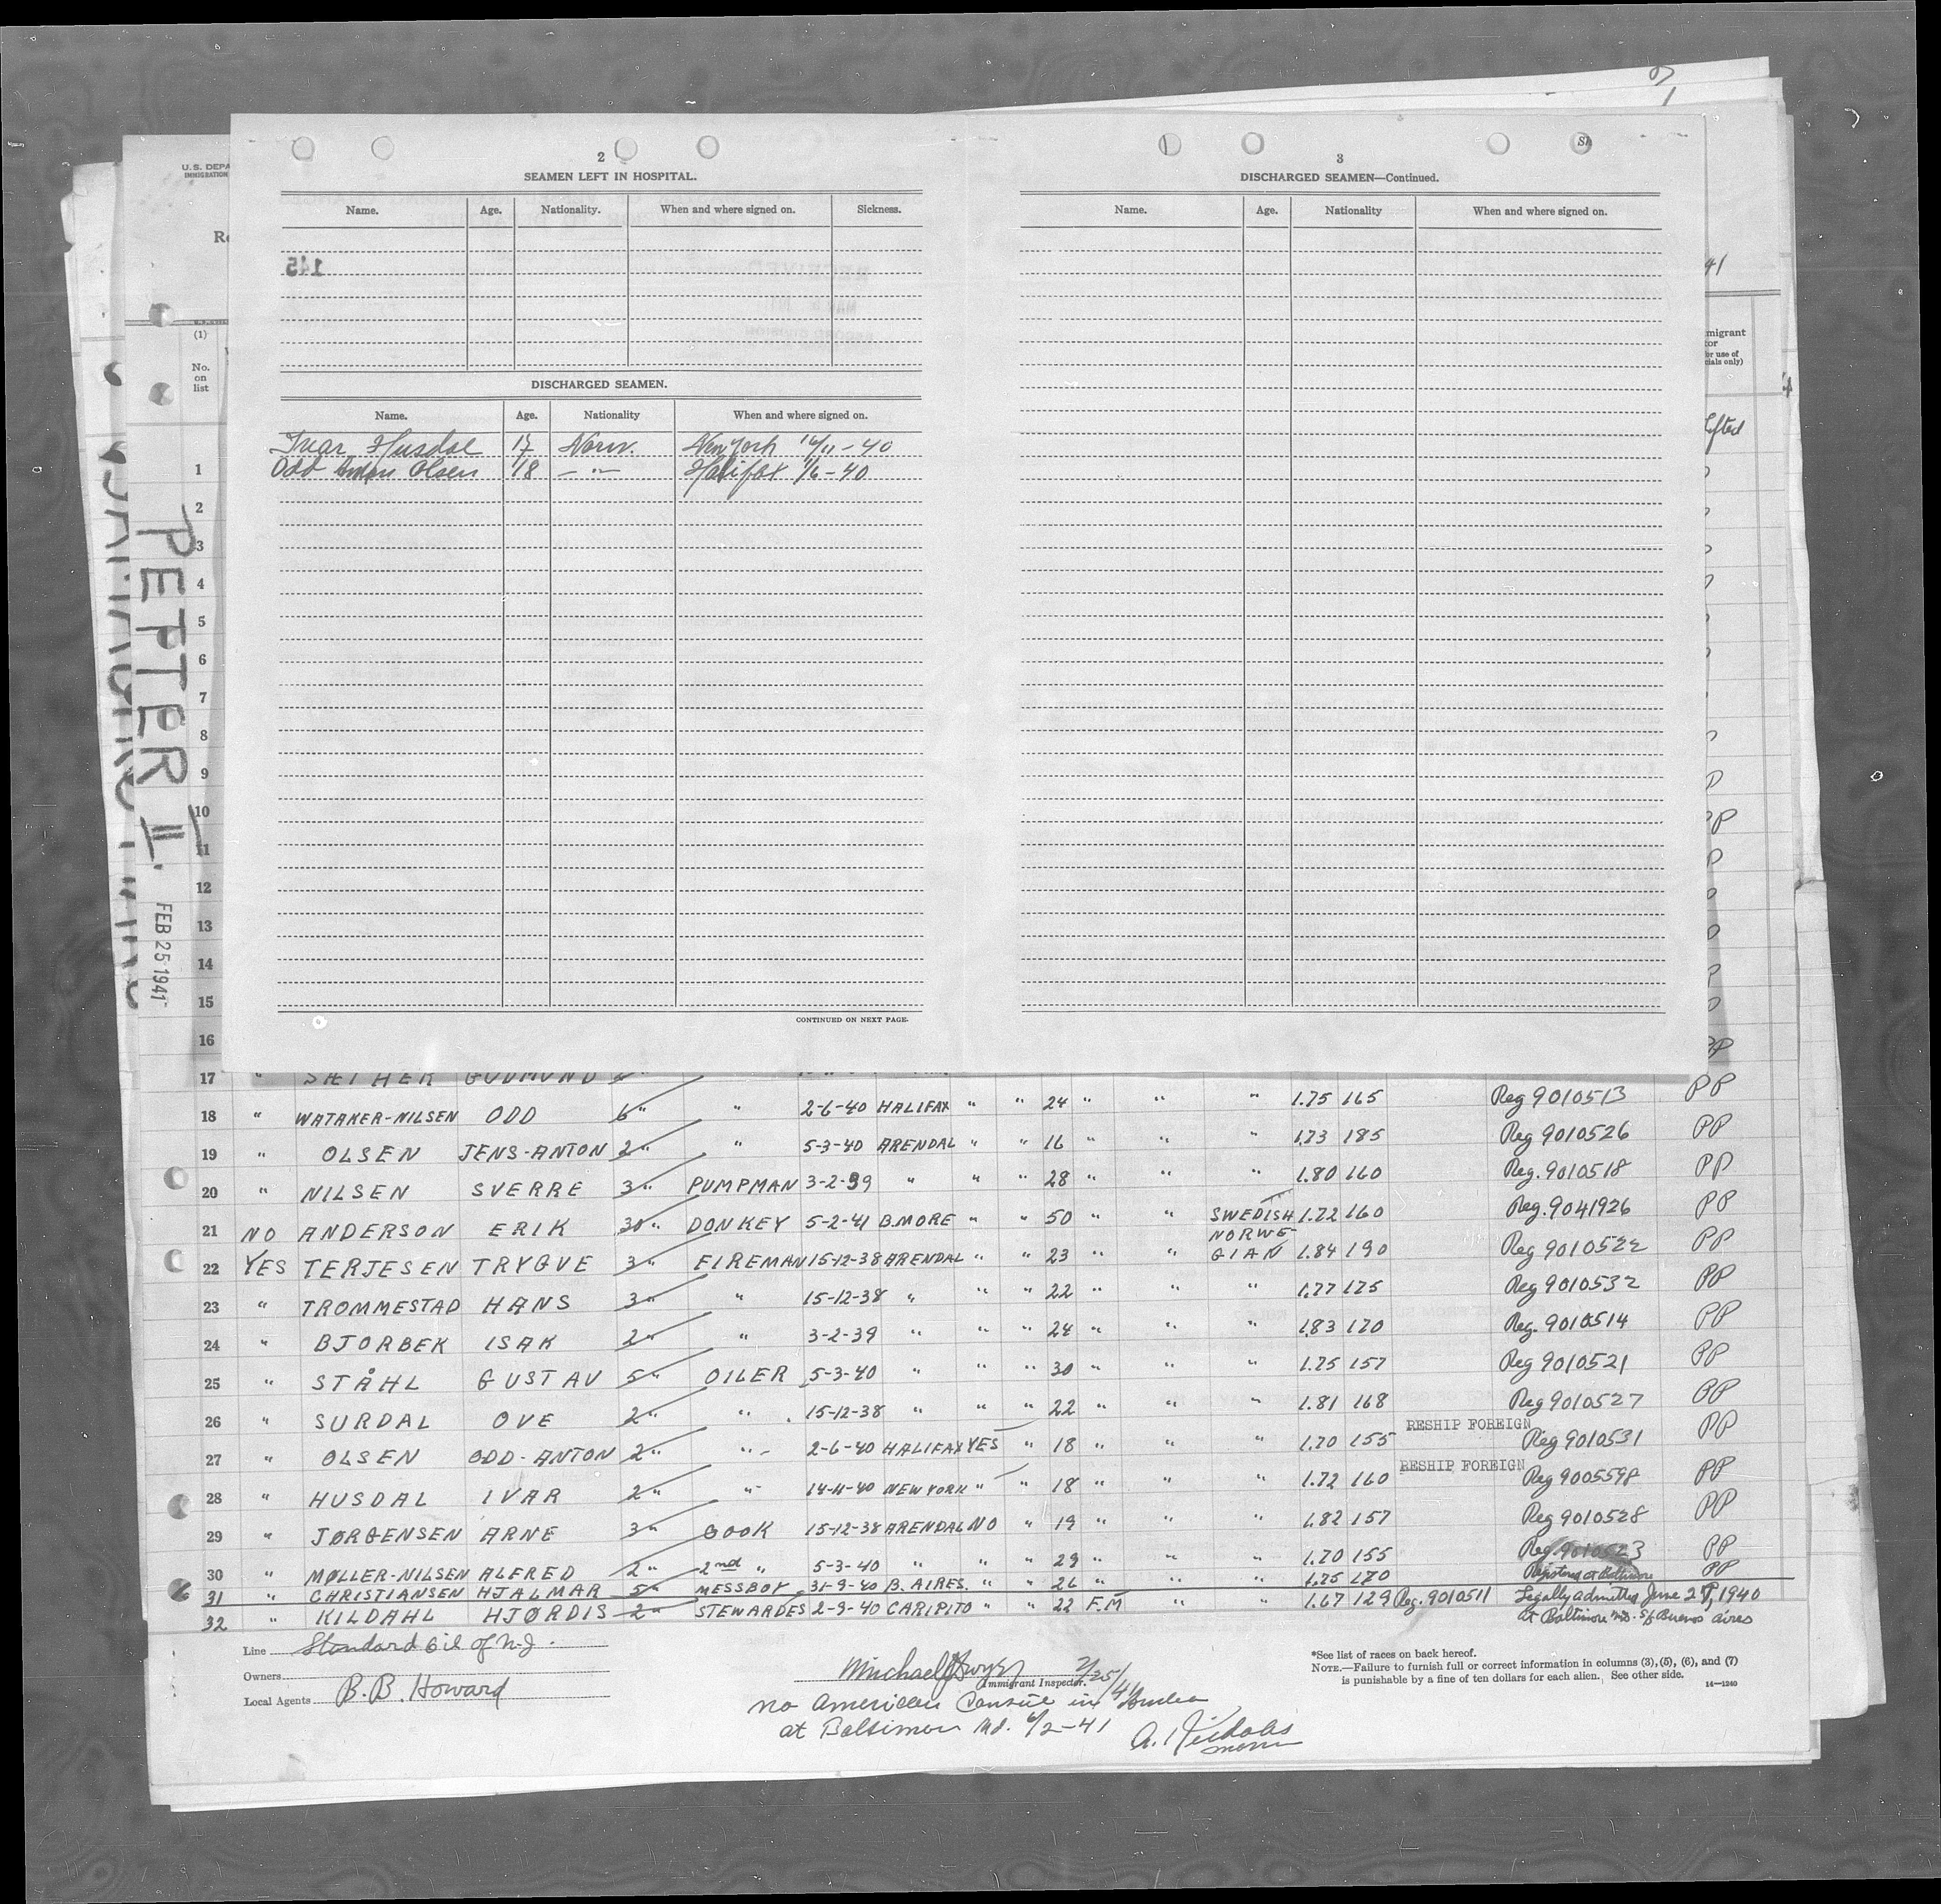 2
SEAMEN LEFT IN HOSPITAL.
Name. Age. Nationality. When and where signed on. Sickness.
145
DISCHARGED SEAMEN.
Name. Age. Nationality When and where signed on.
Ivar Husdal 17 Norw. New York 16/11-40
Odd Anton Olsen 18 — " — Halifax 1/6-40
CONTINUED ON NEXT PAGE.
3
DISCHARGED SEAMEN—Continued.
Name. Age. Nationality When and where signed on.
U.S. DEPA
IMMIGRATION
Re
(1)
No. on list
41
migrant
tor
or use of
cials only)
lifted
PETTER II.
FEB 25 1941
1
2
3
4
5
6
7
8
9
10
11
12
13
14
15
16
17 " SÆTHER GUDMUND
18 " WATAKER-NILSEN ODD 6 " " 2-6-40 HALIFAX " " 24 " " " 1.75 165 Reg 9010513 PP
19 " OLSEN JENS-ANTON 2 " " 5-3-40 ARENDAL " " 16 " " " 1.73 185 Reg 9010526 PP
20 " NILSEN SVERRE 3 " PUMPMAN 3-2-39 " " " 28 " " " 1.80 160 Reg. 9010518 PP
21 NO ANDERSON ERIK 30 " DONKEY 5-2-41 B.MORE " " 50 " " SWEDISH 1.72 160 Reg. 9041926 PP
22 YES TERJESEN TRYGVE 3 " FIREMAN 15-12-38 ARENDAL " " 23 " " NORWEGIAN 1.84 190 Reg 9010522 PP
23 " TROMMESTAD HANS 3 " " 15-12-38 " " " 22 " " " 1.77 175 Reg 9010532 PP
24 " BJORBEK ISAK 2 " " 3-2-39 " " " 24 " " " 1.83 170 Reg. 9010514 PP
25 " STÅHL GUSTAV 5 " OILER 5-3-40 " " " 30 " " " 1.75 157 Reg 9010521 PP
26 " SURDAL OVE 2 " " 15-12-38 " " " 22 " " " 1.81 168 Reg 9010527 PP
27 " OLSEN ODD-ANTON 2 " " 2-6-40 HALIFAX YES " 18 " " " 1.70 155 RESHIP FOREIGN Reg 9010531 PP
28 " HUSDAL IVAR 2 " " 14-11-40 NEW YORK " " 18 " " " 1.72 160 RESHIP FOREIGN Reg 9005598 PP
29 " JØRGENSEN ARNE 3 " COOK 15-12-38 ARENDAL NO " 19 " " " 1.82 157 Reg 9010528 PP
30 " MØLLER-NILSEN ALFRED 2 " 2nd " 5-3-40 " " " 29 " " " 1.70 155 Reg. 9010523 PP
31 " CHRISTIANSEN HJALMAR 5 " MESSBOY 31-9-40 B. AIRES. " " 26 " " " 1.75 170 Registered at Baltimore PP
32 " KILDAHL HJØRDIS 2 " STEWARDES 2-9-40 CARIPITO " " 22 F.M " " 1.67 129 Reg. 9010511 Legally admitted June 27, 1940
at Baltimore Md. S/S Buenos Aires
Line Standard Oil of N-J.
Owners
Local Agents B. B. Howard
Michael Dwyer 2/25/41
Immigrant Inspector.
no American Consul in Aruba
at Baltimore Md. 6/2-41
A. Nicholas
*See list of races on back hereof.
NOTE.—Failure to furnish full or correct information in columns (3), (5), (6), and (7)
is punishable by a fine of ten dollars for each alien. See other side.
14—1240